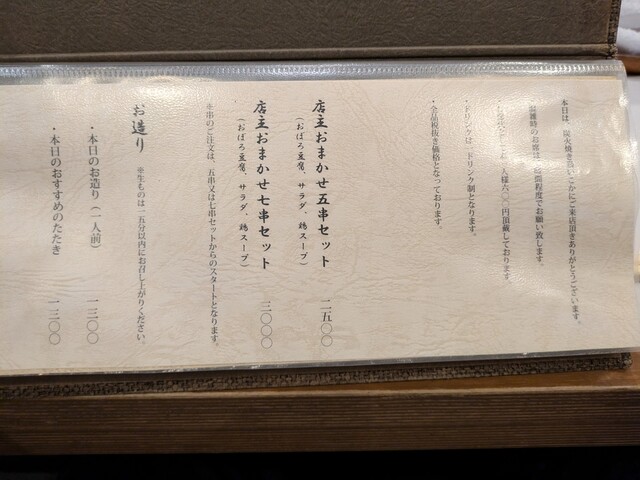 本日は、炭火焼き にご来店頂きありがとうございます。
混雑時のお席は 時間程度でお願い致します。
様六〇〇円頂戴しております
・ドリンクは一ドリンク制となります。
・全品税抜き価格となっております。
店主おまかせ五串セット 二五〇〇
（おぼろ豆腐、サラダ、鶏スープ）
店主おまかせ七串セット 三〇〇〇
（おぼろ豆腐、サラダ、鶏スープ）
※串のご注文は、五串又は七串セットからのスタートとなります。
お造り ※生ものは一五分以内にお召し上がりください。
・本日のお造り（一人前） 一三〇〇
・本日のおすすめのたたき 一三〇〇